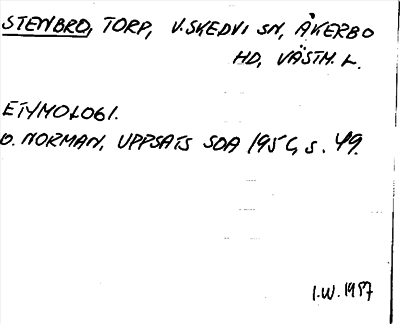 STENBRO, TORP, V. SKEDVI SN, ÅKERBO
HD, VÄSTM. L.
ETYMOLOGI.
O. NORMAN, UPPSATS SOA s. 49.
I.W. 1987